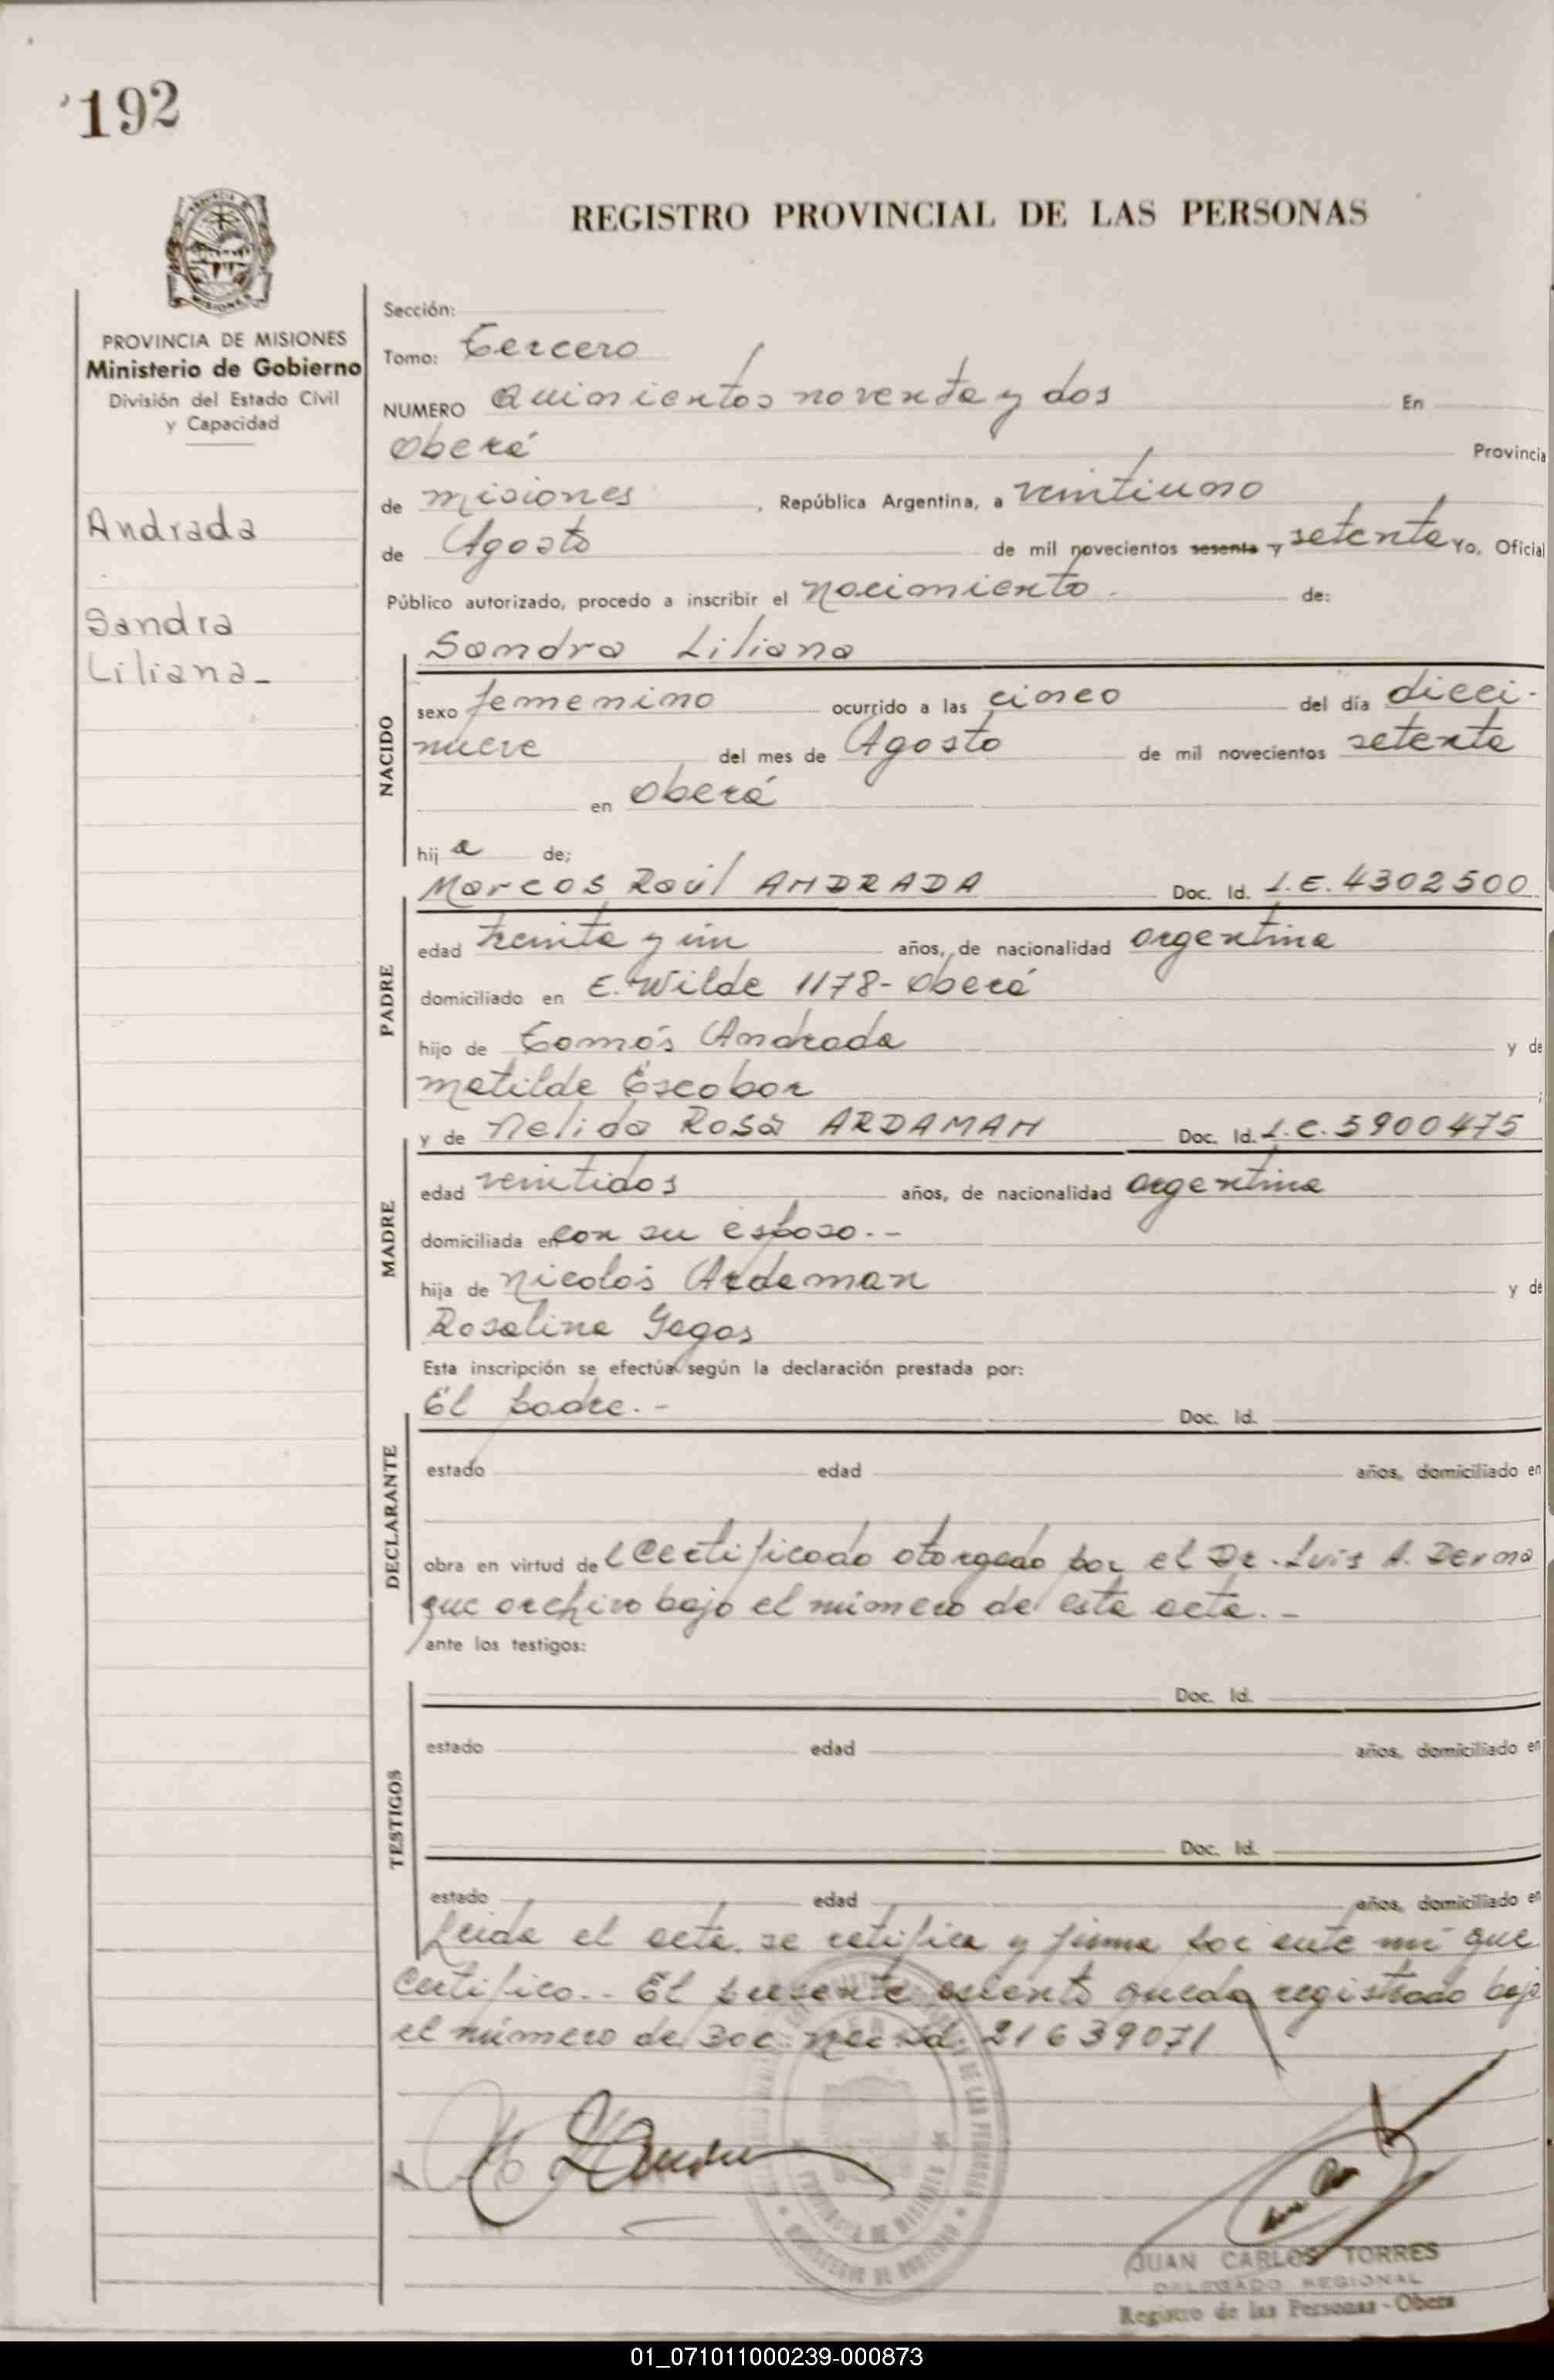 192
REGISTRO PROVINCIAL DE LAS PERSONAS
PROVINCIA DE MISIONES
Ministerio de Gobierno
División del Estado Civil
y Capacidad
Andrada
Sandra
Liliana_
Sección:
Tomo: Tercero
NUMERO Quinientos noventa y dos En
Oberá Provincia
de misiones , República Argentina, a veintiuno
de Agosto de mil novecientos sesenta y setenta Yo, Oficial
Público autorizado, procedo a inscribir el nacimiento.- de:
NACIDO
Sandra Liliana
sexo femenino ocurrido a las cinco del día dieci-
nueve del mes de Agosto de mil novecientos setenta
en Oberá
hij a de;
PADRE
Marcos Raúl ANDRADA Doc. Id. L.E. 4302500
edad treinta y un años, de nacionalidad argentina
domiciliado en E. Wilde 1178- Oberá
hijo de Tomás Andrada y de
Matilde Escobar ;
MADRE
y de Nelida Rosa ARDAMAN Doc. Id. L.C. 5900475
edad veintidos años, de nacionalidad argentina
domiciliada en con su esposo.--
hija de Nicolás Ardaman y de
Rosalina Gagos
Esta inscripción se efectúa según la declaración prestada por:
DECLARANTE
El padre.- Doc. Id.
estado edad años, domiciliado en
obra en virtud del Certificado otorgado por el Dr. Luis A. Derna
que archivo bajo el número de esta acta.-
ante los testigos:
TESTIGOS
Doc. Id.
estado edad años, domiciliado en
Doc. Id.
estado edad años, domiciliado en
Leida el acta se ratifica y firma por ante mí que
Certifico.- El presente asiento queda registrado bajo
el número de Doc. Nac. Id. 21639071
PROVINCIA DE MISIONES
MINISTERIO DE GOBIERNO
JUAN CARLOS TORRES
DELEGADO REGIONAL
Registro de las Personas - Obera
01_071011000239-000873